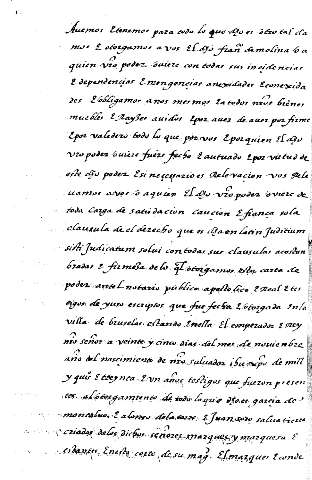 Avemos E tenemos para todo lo que dho es otro tal da
mos E otorgamos a vos El dho fran^co de molina o a
quien vro poder oviere con todas sus incidencias
E dependencias E mergencias anexidades E conexida
des E obligamos a nos mesmos E a todos nros bienes
muebles E Rayzes avidos E por aver de aver por firme
E por valedero todo lo que por vos E por quien El dho
vro poder oviere fuere fecho E autuado E por virtud de
este dho poder E si necesario es Relevacion vos Rele
vamos a vos o a quien El dho vro poder oviere de
toda carga de satisdacion caucion E fiança so la
clausula de el derecho que es dha en latin Judicium
sisti Judicatum solui con todas sus clausulas acostun
bradas E firmeza de lo ql otorgamos esta carta de
poder ante el notario publico apostolico E Real E tes
tigos de yuso escriptos que fue fecha E otorgada En la
villa de bruselas estando En ella El emperador E Rey
nro señor a veinte y cinco dias del mes de noviembre
año del nascimiento de nro salvador ihu xpo de mill
y quis E treynta E un años testigos que fueron presen
tes al otorgamiento de todo lo que dho es garcia de
montalvo E alonso de la torre E Juan
criados de los dichos señores marques y marquesa E
Residentes En esta corte de su mag. El marques conde